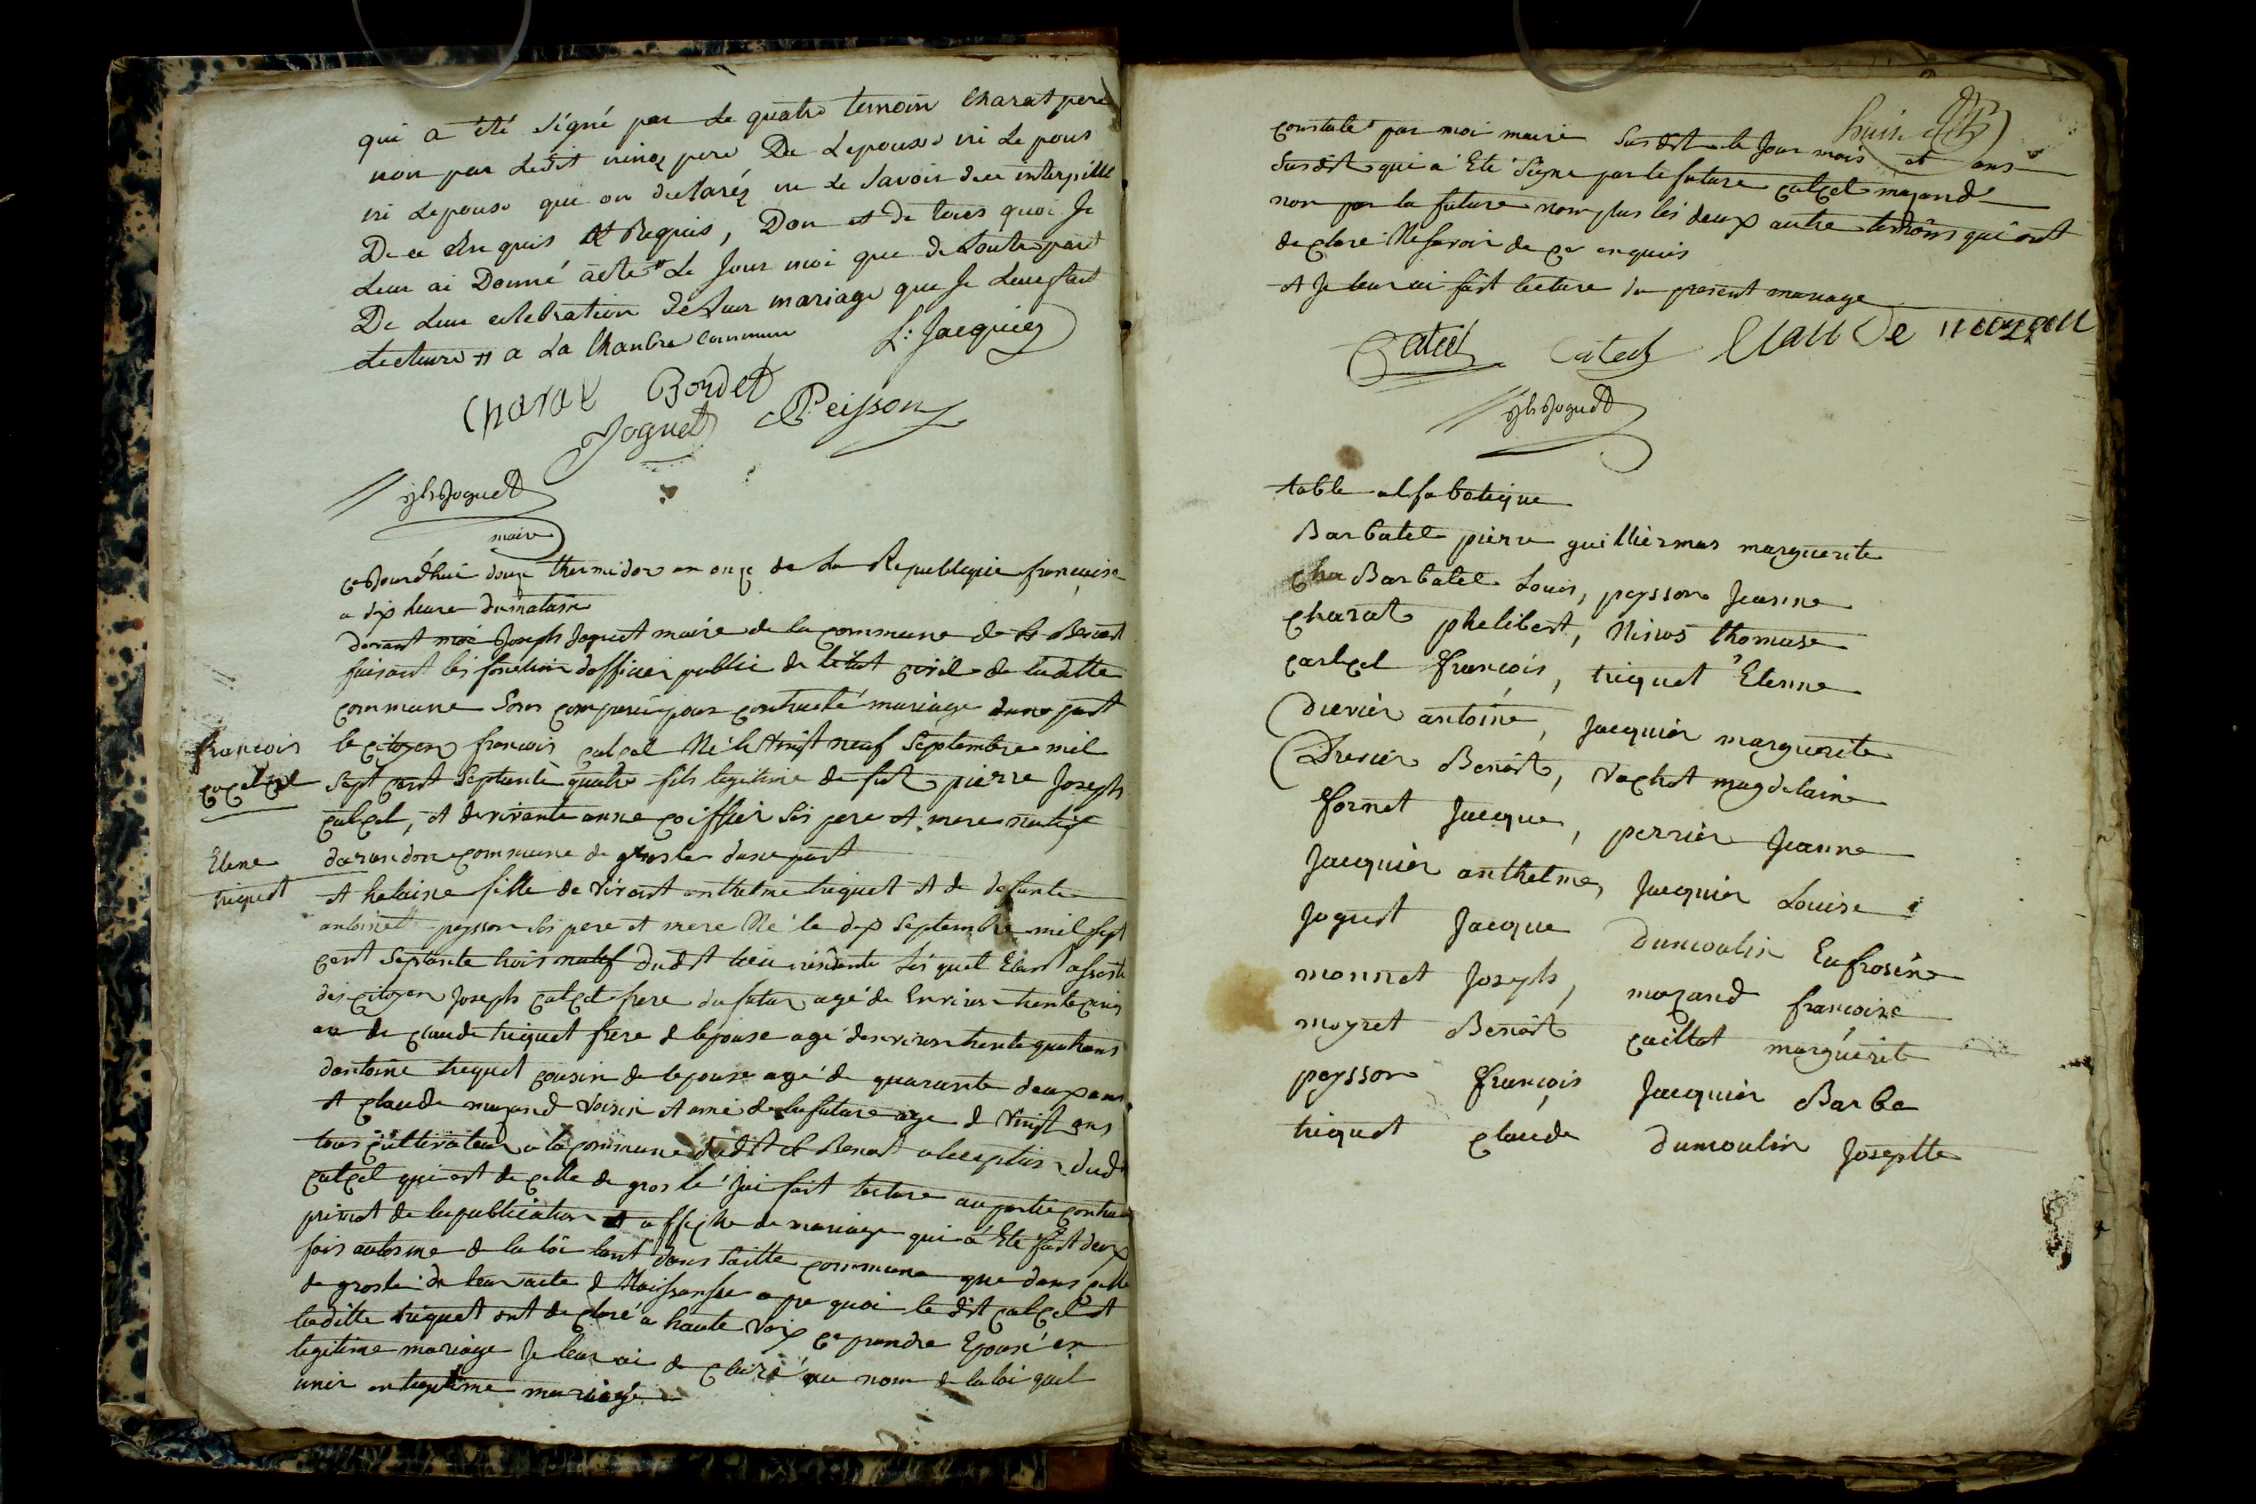 qui a été signé par le quatre temoin Charat pere
non par ledit ninoz pere De Lepouse ni Le pous
ni Lepouse que on declaréz ne Le Savoir de ce interpillé
De ce Enquis et Requis, Don et De tous quoi Je
Leur ai Donné acte Le Jour moi que de toute part
De Leur celebration de Leur mariage que Je Leur fait
Lecture a La Chambre Commune L: Jacquier
Charat Bordet
Joguet Peisson
Jh Joguet
maire
cejourd'hui douze thermidor an onze de La Republique françoise
a dix heure du matain
devant moi Joseph Joguet maire de la commune de St Benoit
faisant les fonction dofficier public de letat civil de laditte
commune Sons comparu pour contracté mariage dune part
françois
calcel
le citoyen françois calcel Né le vint neuf Septembre mil
sept cent Septante quatre fils legitime de fut pierre Joseph
calcel, et de vivante anne coiffier Ses pere et mere natif
Elene
triquet
darandon commune de groslée dune part
et helaine fille de vivant anthelme triquet et de defunte
antoinet peysson Ses pere et mere Né le dix Septembre mil sept
cent Septante trois natif dudit lieu residante Les quel Etant assisté
des citoyen Joseph calcel frere du futur agé de Environ trente cinq
an de claude triquet frere de lepouse agé denviron trente quatre ans
dantoine triquet cousin de lepouse agé de quarante deux ans
et claude mazand voisin et ami de la future age de vingt ans
tous cultivateur a la commune dudit St Benoit alexeption dudt
calcel qui est de celle de groslé jai fait lecture au partie contra
prinet de la publication et affiche de mariage qui a Eté fait deux
fois au terme de la loi tant dans laditte commune que dans celle
de groslé de leur acte de Naissansse apre quoi le dit calcel et
laditte triquet ont declaré a haute voix ce prendre Epoux en
legitime mariage Je leur ai declairé au nom de la loi quil
unis en legitime mariage
huise
constaté par moi maire Susdit le Jour mois et ans
Susdit qui a Eté Signe par le future calcel mazand
non par la future non plus les deux autre temoins qui ont
declaré Ne savoir de ce enquis
et Je leur ai fait lecture du present mariage
Catcel Catcel Claude mazan
Jh Joguet
table alfabetique
Barbatel pierre guilliermas marguerite
cha Barbatel Louis, peysson Jeanne
charat phelibert, Ninos thomase
calcel françois, triquet Elenne
Drevier antoine, Jacquier marguerite
Drevier Benoit, vachot magdelaine
fornet Jacque, perrier Jeanne
Jacquier anthelme, Jacquier Louise
Joguet Jacque Dumoulin Eufrosine
monnet Joseph, mazand françoise
moyret Benoit caillot marguerite
peysson françois Jacquier Barbe
triquet claude dumoulin Josephte